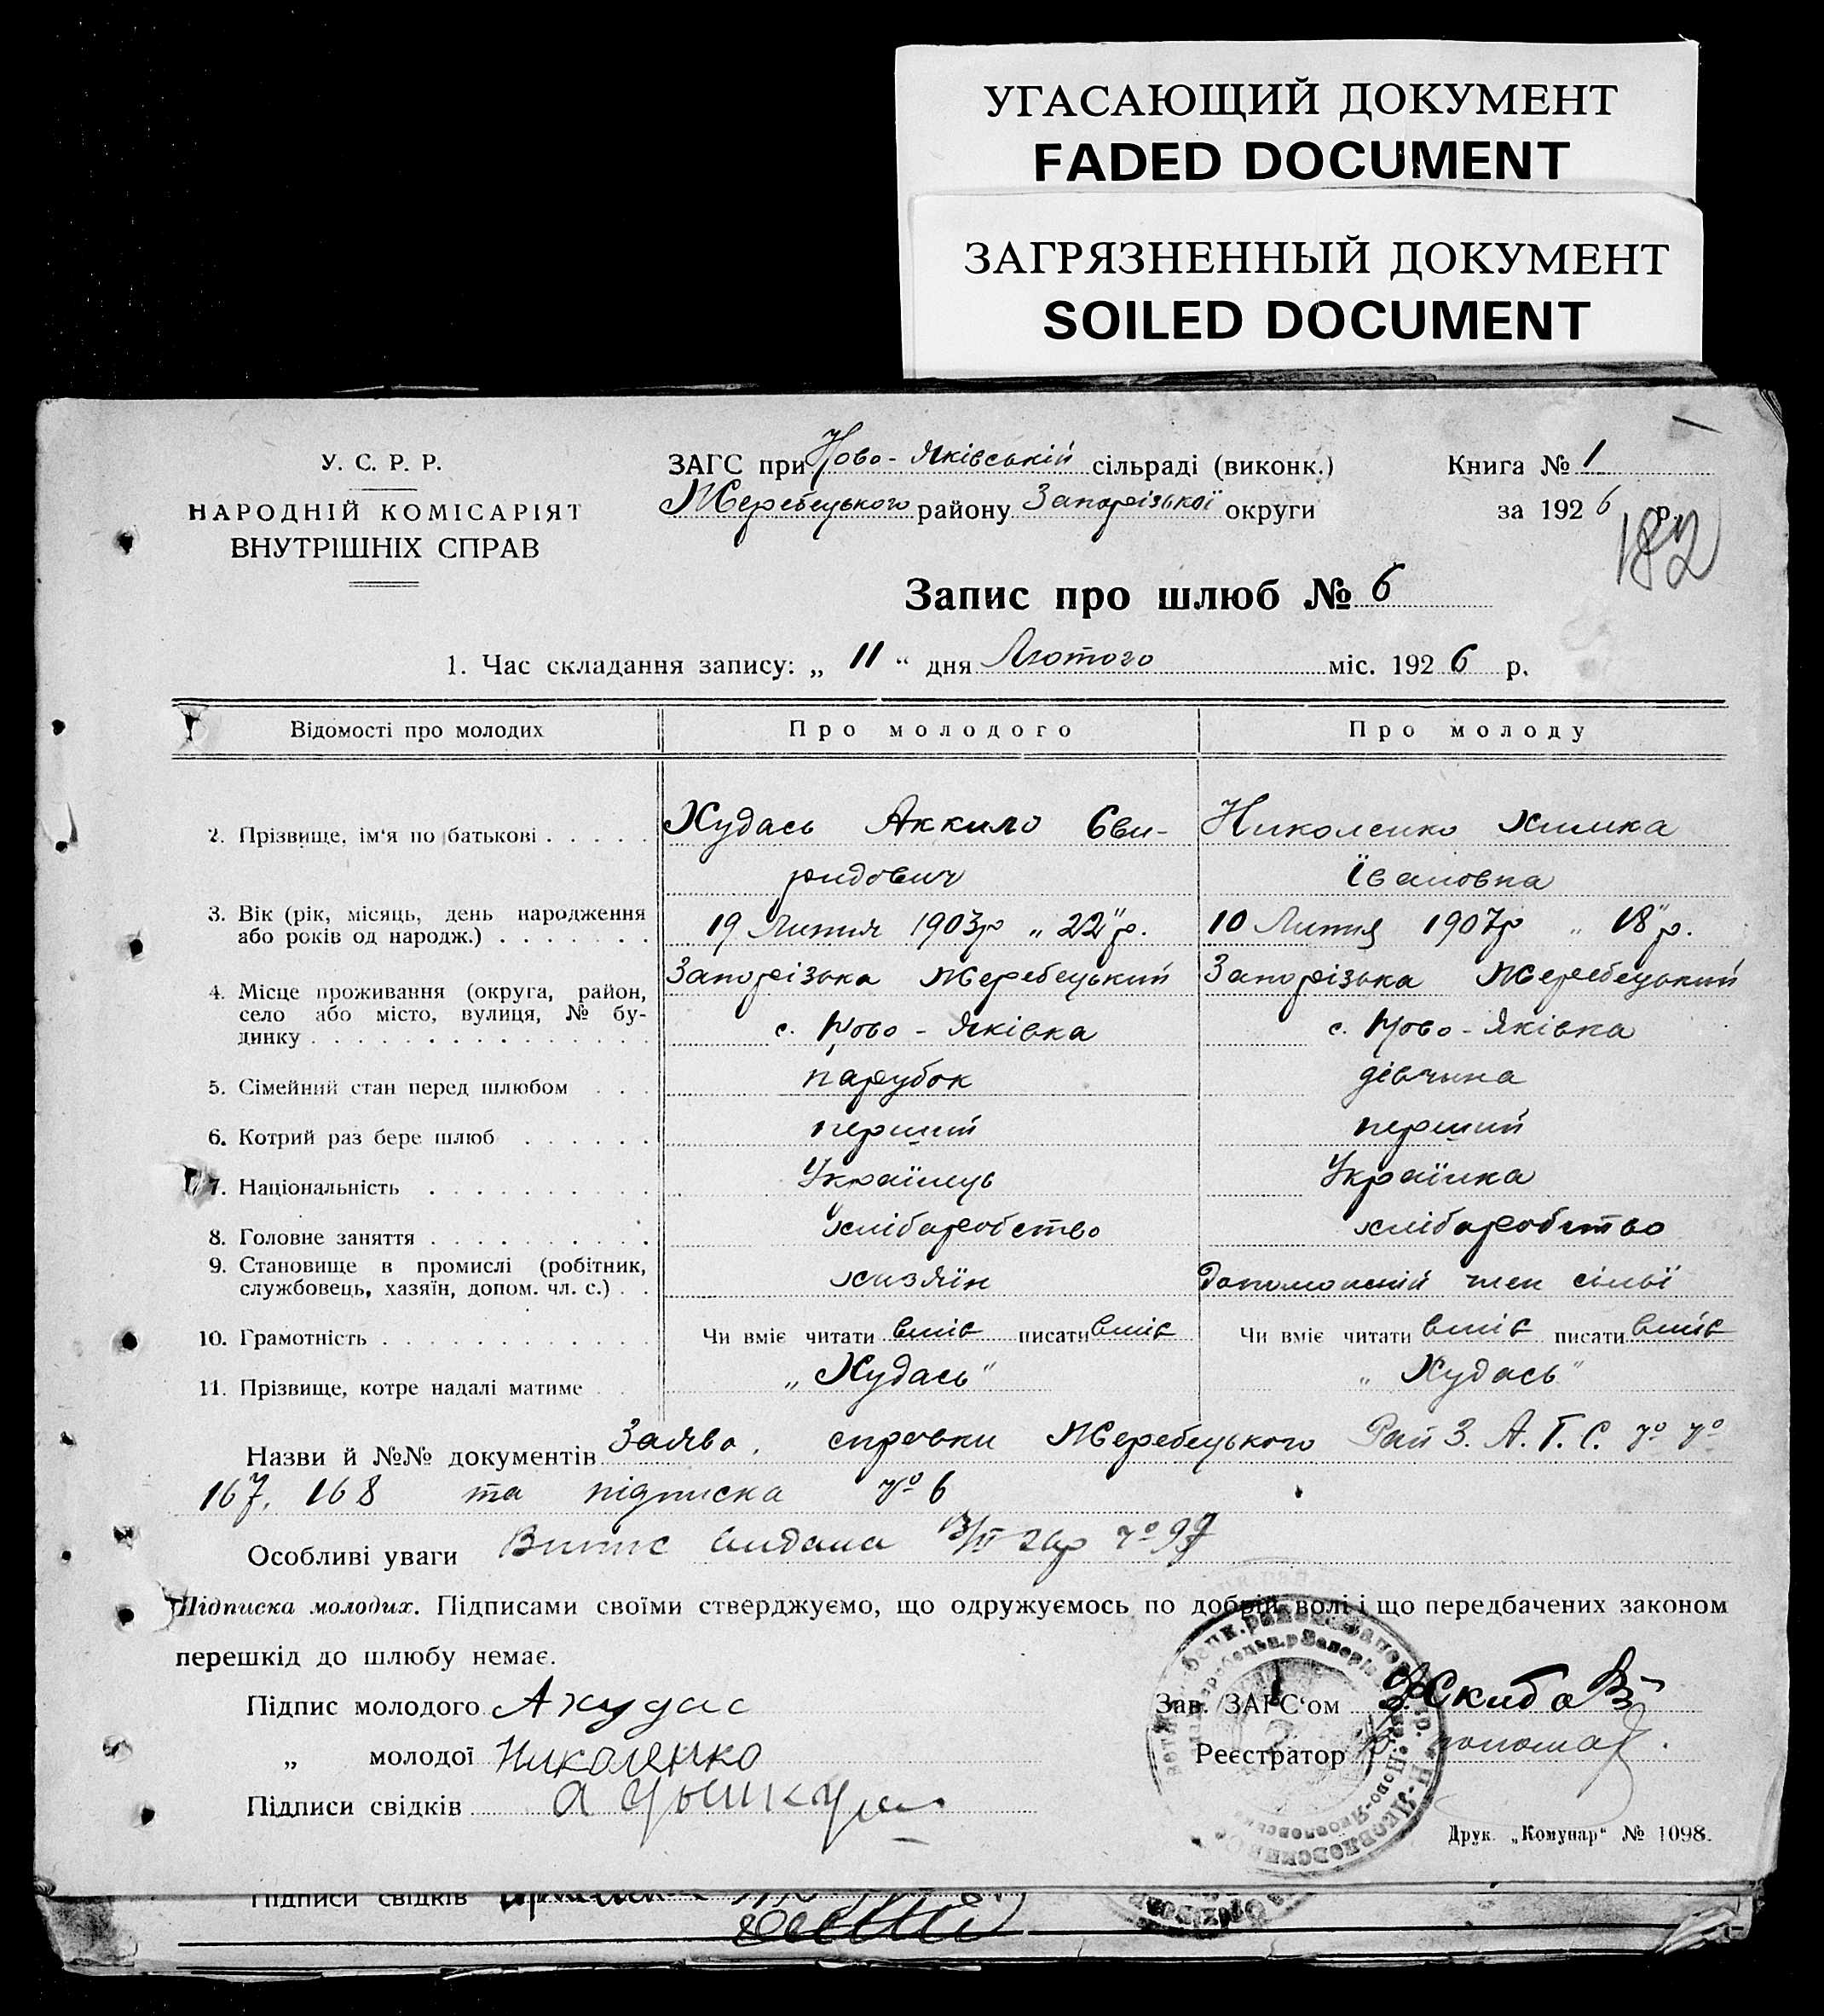 УГАСАЮЩИЙ ДОКУМЕНТ
FADED DOCUMENT
ЗАГРЯЗНЕННЫЙ ДОКУМЕНТ
SOILED DOCUMENT
У. С. Р. Р.
НАРОДНІЙ КОМІСАРІЯТ
ВНУТРІШНІХ СПРАВ
ЗАГС при Ново-Яківській сільраді (виконк.)
Жеребецького району Запорізької округи
Книга № 1
за 1926 р.
182
Запис про шлюб № 6
1. Час складання запису: „ 11 “ дня Лютого міс. 1926 р.
Відомості про молодих Про молодого Про молоду
2. Прізвище, ім‘я по батькові Худась Аккило Сви- Николенко Химка
ридович Івановна
3. Вік (рік, місяць, день народження
або років од народж.) 19 Липня 1903р „22" р. 10 Липня 1907р „ 18" р.
4. Місце проживання (округа, район, Запорізька Жеребецький Запорізька Жеребецький
село або місто, вулиця, № бу-
динку с. Ново-Яківка с. Ново-Яківка
5. Сімейний стан перед шлюбом парубок дівчина
6. Котрий раз бере шлюб перший перший
7. Національність Українець Українка
8. Головне заняття хліборобство хліборобство
9. Становище в промислі (робітник,
службовець, хазяїн, допом. чл. с.) хазяїн Допоможній член сімьї
10. Грамотність Чи вміє читати вміє писати вміє Чи вміє читати вміє писати вміє
11. Прізвище, котре надалі матиме „Худась" „Худась"
Назви й №№ документів Заява, справки Жеребецького Рай З.А.Г.С. № №
167, 168 та підписка № 6
Особливі уваги Витис видана 13/II 26р № 97
Підписка молодих. Підписами своїми стверджуємо, що одружуємось по добрій волі і що передбачених законом
перешкід до шлюбу немає.
Підпис молодого А Худас
„ молодої Николенко
Підписи свідків
Зав. ЗАГС‘ом Скиба
Реєстратор
Друк. „Комунар“ № 1098.
Підписи свідків